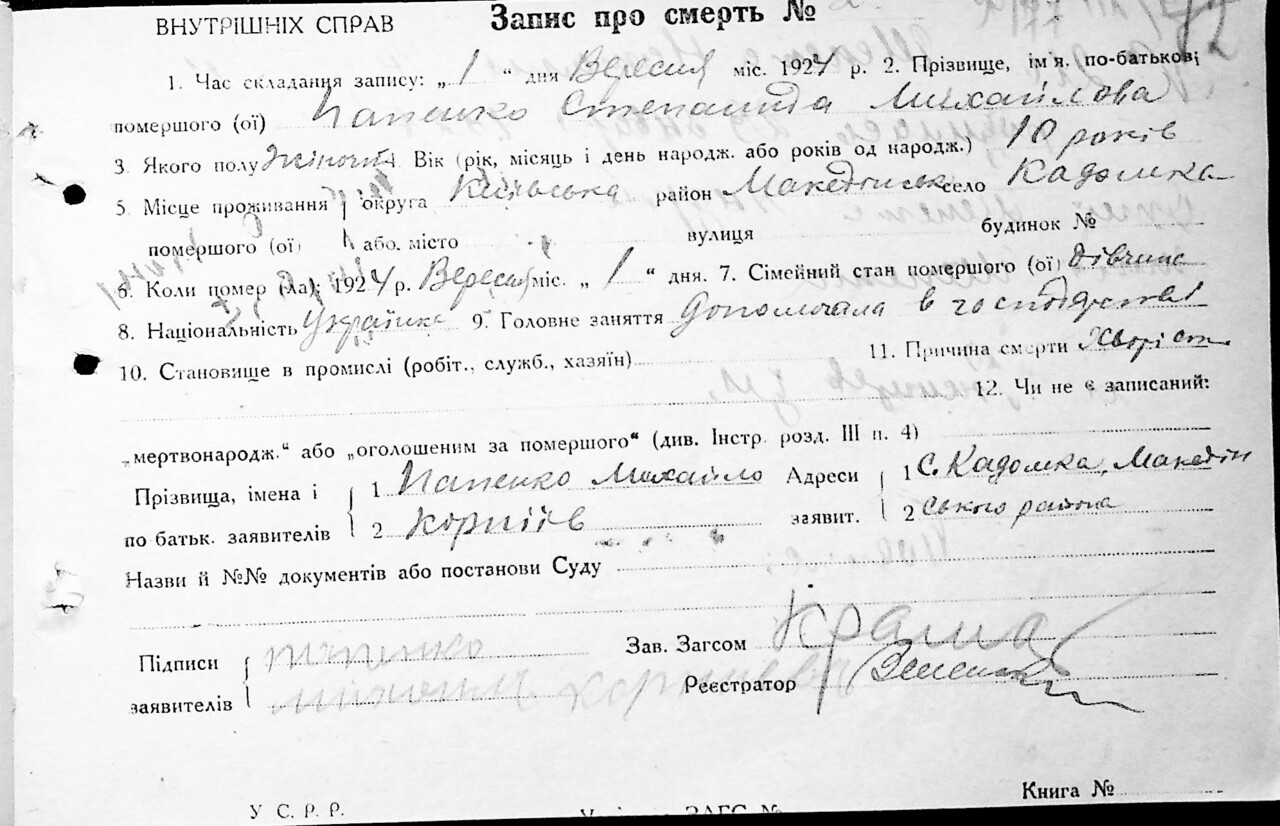 ВНУТРІШНІХ СПРАВ Запис про смерть № 72
1. Час складання запису: „1“ дня Вересня міс. 1924 р. 2. Прізвище, ім'я, по-батькові
помершого (ої) Папенко Степанида Михайлова
3. Якого полу Жіночий 4. Вік (рік, місяць і день народж. або років од народж.) 10 років
5. Місце проживання округа Київська район Македонськ село Кадомка
помершого (ої) або місто вулиця будинок №
6. Коли помер (ла): 1924 р. Вересня міс. „1“ дня. 7. Сімейний стан помершого (ої) дівчина
8. Національність Українка 9. Головне заняття допомогала в господарстві
10. Становище в промислі (робіт., служб., хазяїн) 11. Причина смерти
12. Чи не є записаний:
„мертвонародж.“ або „оголошеним за помершого“ (див. Інстр. розд. III п. 4)
Прізвища, імена і 1 Папенко Михайло Адреси 1 С. Кадомка, Македон
по батьк. заявителів 2 Корніїв заявит. 2 ського района
Назви й №№ документів або постанови Суду
Підписи Папенко Зав. Загсом
заявителів Реєстратор
Книга №
У С. Р. Р. ЗАГС №